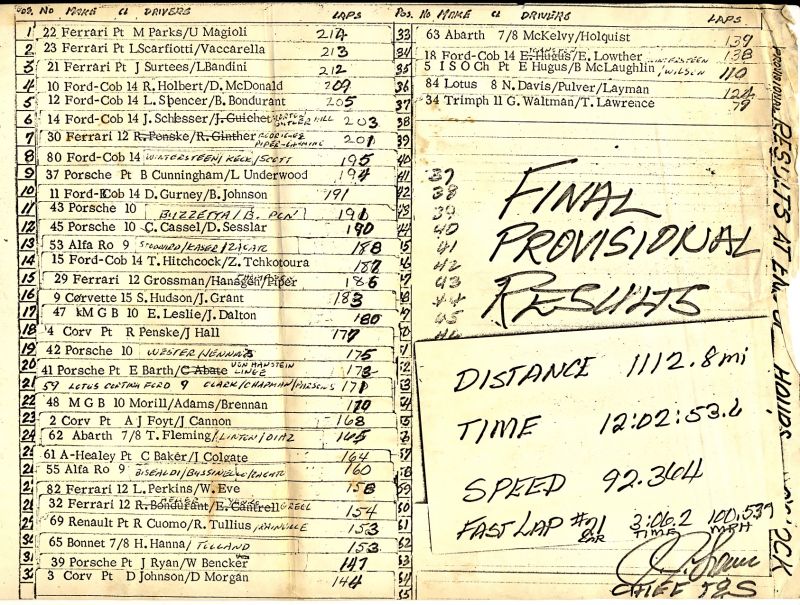 Pos. No MAKE Cl DRIVERS LAPS
1 22 Ferrari Pt M Parks/U Magioli 214
2 23 Ferrari Pt LScarfiotti/Vaccarella 213
3 21 Ferrari Pt J Surtees/LBandini 212
4 10 Ford-Cob 14 R.Holbert/D.McDonald 209
5 12 Ford-Cob 14 L.Spencer/B.Bondurant 205
6 14 Ford-Cob 14 J.Schlesser/J.Guichet 203
7 30 Ferrari 12 R.Penske/R.Ginther RODRIGUEZ 201
8 80 Ford-Cob 14 WINTERSTEEN/KECK/SCOTT 195
9 37 Porsche Pt B Cunningham/L Underwood 194
10 11 Ford-Cob 14 D.Gurney/B.Johnson 191
11 43 Porsche 10 BUZZETTA/B. PON 191
12 45 Porsche 10 C.Cassel/D.Sesslar 190
13 53 Alfa Ro 9 STODDARD/KASER/ZAGAR 188
14 15 Ford-Cob 14 T.Hitchcock/Z.Tchkotoura 187
15 29 Ferrari 12 Grossman/Hansgen/Piper 186
16 9 Corvette 15 S.Hudson/J.Grant 183
17 47 kM G B 10 E.Leslie/J.Dalton 180
18 4 Corv Pt R Penske/J Hall 177
19 42 Porsche 10 WESTER/JENNINGS 175
20 41 Porsche Pt E Barth/C Abate VON HANSTEIN LINGE 173
21 59 LOTUS CORTINA FORD 9 CLARK/CHAPMAN/PARSONS 171
22 48 M G B 10 Morill/Adams/Brennan 170
23 2 Corv Pt A J Foyt/J Cannon 168
24 62 Abarth 7/8 T.Fleming/LINTON/DIAZ 165
25 61 A-Healey Pt C Baker/J Colgate 164
26 55 Alfa Ro 9 160
27 82 Ferrari 12 L.Perkins/W.Eve 158
28 32 Ferrari 12 R.Bondurant/E.Cantrell GRELL 154
29 69 Renault Pt R Cuomo/R.Tullius/RAINVILLE 153
30 65 Bonnet 7/8 H.Hanna/TOLLAND 153
31 39 Porsche Pt J Ryan/W Bencker 147
32 3 Corv Pt D Johnson/D Morgan 144
Pos. No MAKE Cl DRIVERS LAPS
33 63 Abarth 7/8 McKelvy/Holquist 139
34 18 Ford-Cob 14 E.Hugus/E.Lowther WINTERSTEEN 138
35 5 I S O Ch P E Hugus/B McLaughlin/WILSON 110
36 84 Lotus 8 N.Davis/Pulver/Layman 124
37 34 Trimph 11 G.Waltman/T.Lawrence 79
38
39
40
41 37
42 38
43 39
44 40
45 41
46 42
47 43
48 44
49 45
FINAL
PROVISIONAL
RESULTS
DISTANCE 1112.8mi
TIME 12:02:53.6
SPEED 92.364
FAST LAP #21 CAR 3:06.2 TIME 100.539 MPH
CHIEF T&S
PROVISIONAL RESULTS AT END OF HOURS